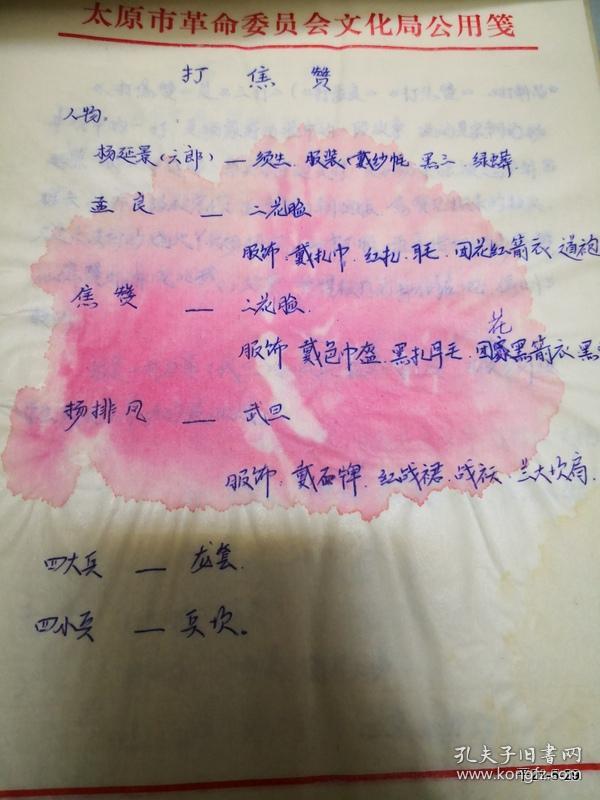 太原市革命委员会文化局公用笺
打焦赞
人物。
杨延景(六郎)—须生.服装(戴纱帽.黑三.绿蟒.
孟良 — 二花脸
服饰.戴扎巾.红扎.耳毛.团花红箭衣.道袍
焦赞 — 二花脸.
花
服饰 戴色巾盔.黑扎耳毛.团黑箭衣.黑
杨排风 — 武旦
服饰.戴石牌.红战裙.战袄.兰大坎肩.
四大兵 — 龙套.
四小兵 — 兵坎。
孔夫子旧书网
www.kongfz.com